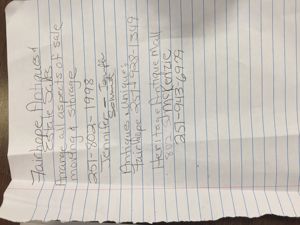 Fairhope Antiques &
Estate Sales
Arrange all aspects of sale
moving & storage
251-802-1998
Jennifer -
Antiques Uniques
Fairhope 251-928-1349
Heritage Antique Mall
McKenzie
251-943-6979